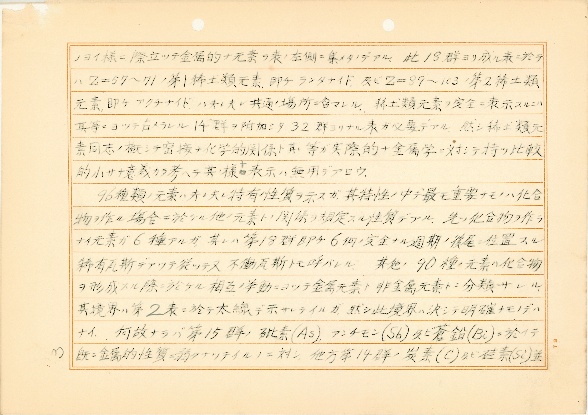 ノヨイ様ニ際立ツテ金属的ナ元素ヲ表ノ右側ニ集メタノデアル。此18群ヨリ成ル表ニ於テ
ハZ=57〜71ノ第1稀土類元素即チランタナイド及ビZ=89〜103ノ第2稀土類
元素即チアクチナイドハ夫々共通ノ場所ニ含マレル。稀土類元素ヲ完全ニ表示スルニハ
其等ニヨツテ占メラレル14群ヲ附加シタ32群ヨリナル表ガ必要デアル。然シ稀土類元
素同志ノ極シテ密接ナ化学的関係ト更ニ等ガ実際的ナ金属学ニ対シテ持ツ比較
的小サナ意義ヲ考ヘテ其様ナ表示ハ無用デアロウ。
96種類ノ元素ハ夫々特有ノ性質ヲ示スガ其特性ノ中デ最モ重要ナモノハ化合
物ヲ作ル場合ニ於ケル他ノ元素トノ関係ヲ決定スル性質デアル。先ヅ化合物ヲ作ラ
ナイ元素ガ6種アルガ其レハ第18群即チ6個ノ完全ナル週期ノ後尾ニ位置スル
稀有瓦斯デアツテ 不働瓦斯トモ呼バレル。其他ノ90種ノ元素ハ化合物
ヲ形成スル際ニ於ケル相互ノ挙動ニヨツテ金属元素ト非金属元素トニ分類サレル。
其境界ハ第2表ニ於テ太線デ示サレテイルガ然シ此境界ハ決シテ明確ナモノデハ
ナイ。何故ナラバ第15群ノ砒素(As)、アンチモン(Sb)及ビ蒼鉛(Bi)ニ於イテ
既ニ金属的性質ハ弱クナツテイルノニ対シ、他方第14群ノ炭素(C)及ビ硅素(Si)並